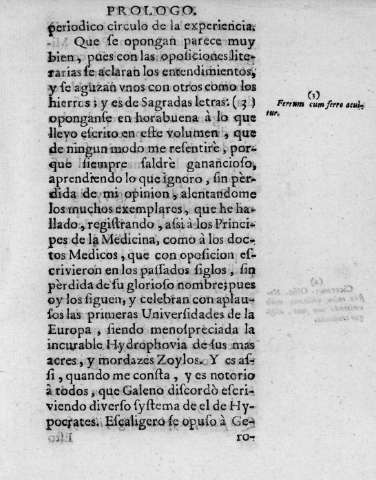 PROLOGO.
periodico circulo de la experiencia.
Que se opongan parece muy
bien, pues con las oposiciones lite-
rarias se aclaran los entendimientos,
y se aguzan vnos con otros como los
hierros; y es de Sagradas letras: (3)
oponganse en horabuena à lo que
llevo escrito en este volumen, que
de ningun modo me resentirè, por-
que siempre saldrè ganancioso,
aprendiendo lo que ignoro, sin pèr-
dida de mi opinion, alentandome
los muchos exemplares, que he ha-
llado, registrando, assi à los Princi-
pes de la Medicina, como à los doc-
tos Medicos, que con oposicion es-
crivieron en los passados siglos, sin
pèrdida de su glorioso nombre; pues
oy los siguen, y celebran con aplau-
sos las primeras Universidades de la
Europa, siendo menospreciada la
incurable Hydrophovia de sus mas
acres, y mordazes Zoylos. Y es as-
si, quando me consta, y es notorio
à todos, que Galeno discordò escri-
viendo diverso systema de el de Hy-
pocrates. Escaligero se opuso à Ge-
ro-
(3)
Ferrum cum ferro acui-
tur.